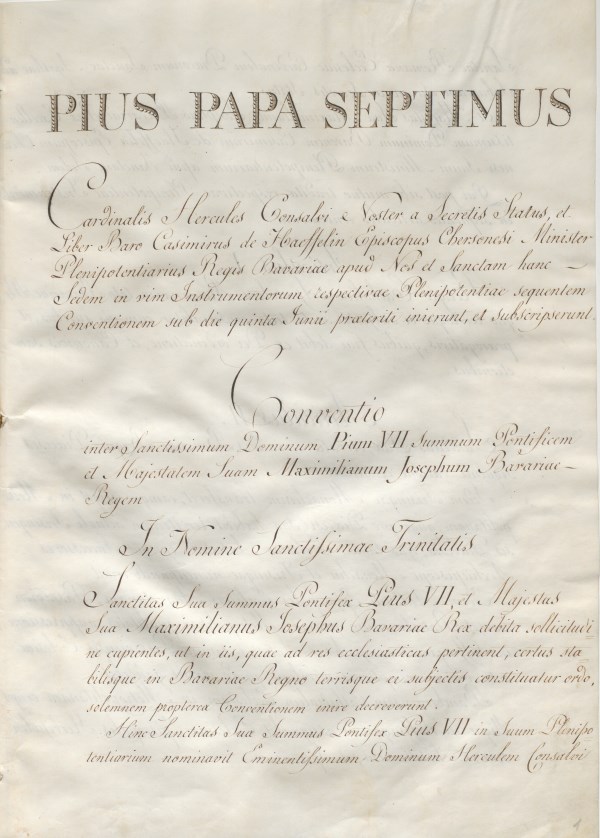 PIUS PAPA SEPTIMUS
Cardinalis Hercules Consalvi Noster a Secretis Status, et
Liber Baro Casimirus de Haeffelin Episcopus Chersonesi Minister
Plenipotentiarius Regis Bavariae apud Nos et Sanctam hanc
Sedem in vim Instrumentorum respectivae Plenipotentiae sequentem
Conventionem sub die quinta Junii praeteriti inierunt, et subscripserunt.
Conventio
inter Sanctissimum Dominum Pium VII Summum Pontificem
et Majestatem Suam Maximilianum Josephum Bavariae
Regem
In Nomine Sanctissimae Trinitatis
Sanctitas Sua Summus Pontifex Pius VII, et Majestas
Sua Maximilianus Josephus Bavariae Rex, debita sollicitudi
ne cupientes, ut in iis, quae ad res ecclesiasticas pertinent, certus sta
bilisque in Bavariae Regno terrisque ei subjectis constituatur ordo,
solemnem propterea Conventionem inire decreverunt.
Hinc Sanctitas Sua Summus Pontifex Pius VII in Suum Plenipo
tentiarium nominavit Eminentissimum Dominum Herculem Consalvi